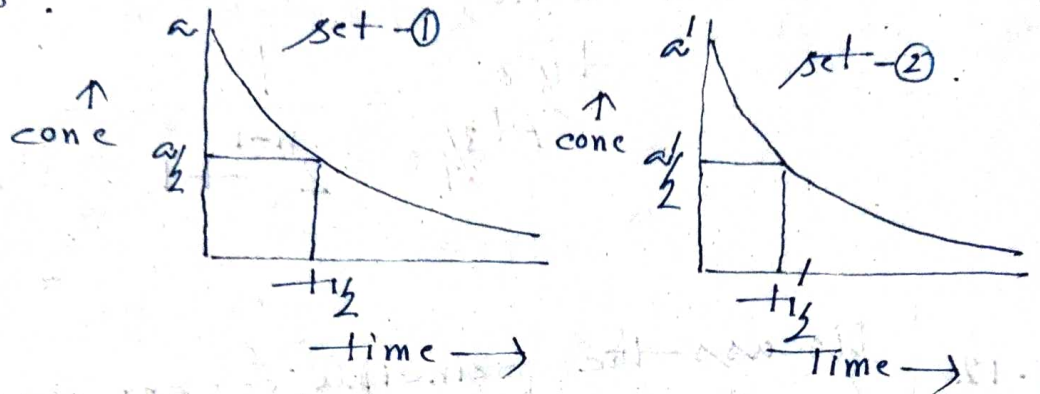 a set-①
↑
conc
a/2
t1/2
time →
a' set-②.
↑
conc
a'/2
t1/2'
Time →